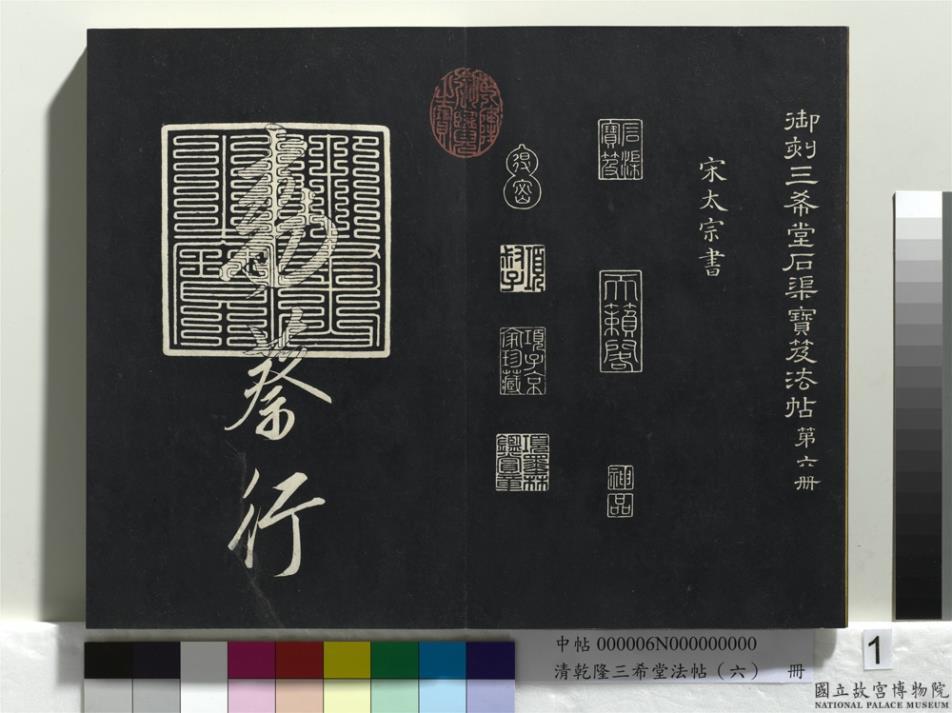 御刻三希堂石渠寶笈法帖 第六册
宋太宗書
石渠
寶笈
天籟閣
神品
得密
項
叔子
項子京
家珍藏
項墨林
鑑賞章
敕蔡行
中帖 000006N000000000
清乾隆三希堂法帖（六） 冊
1
國立故宮博物院
NATIONAL PALACE MUSEUM